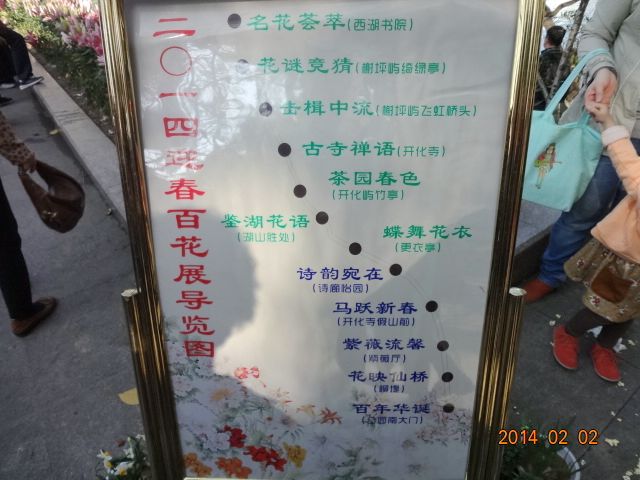 二〇一四迎春百花展导览图
名花荟萃(西湖书院)
花谜竞猜(榭坪屿绮绿亭)
击楫中流(榭坪屿飞虹桥头)
古寺禅语(开化寺)
茶园春色
(开化屿竹亭)
鉴湖花语
(湖山胜处)
蝶舞花衣
(更衣亭)
诗韵宛在
(诗廊怡园)
马跃新春
(开化寺假山前)
紫薇流馨
(紫薇厅)
花映仙桥
百年华诞
(公园南大门)
2014 02 02